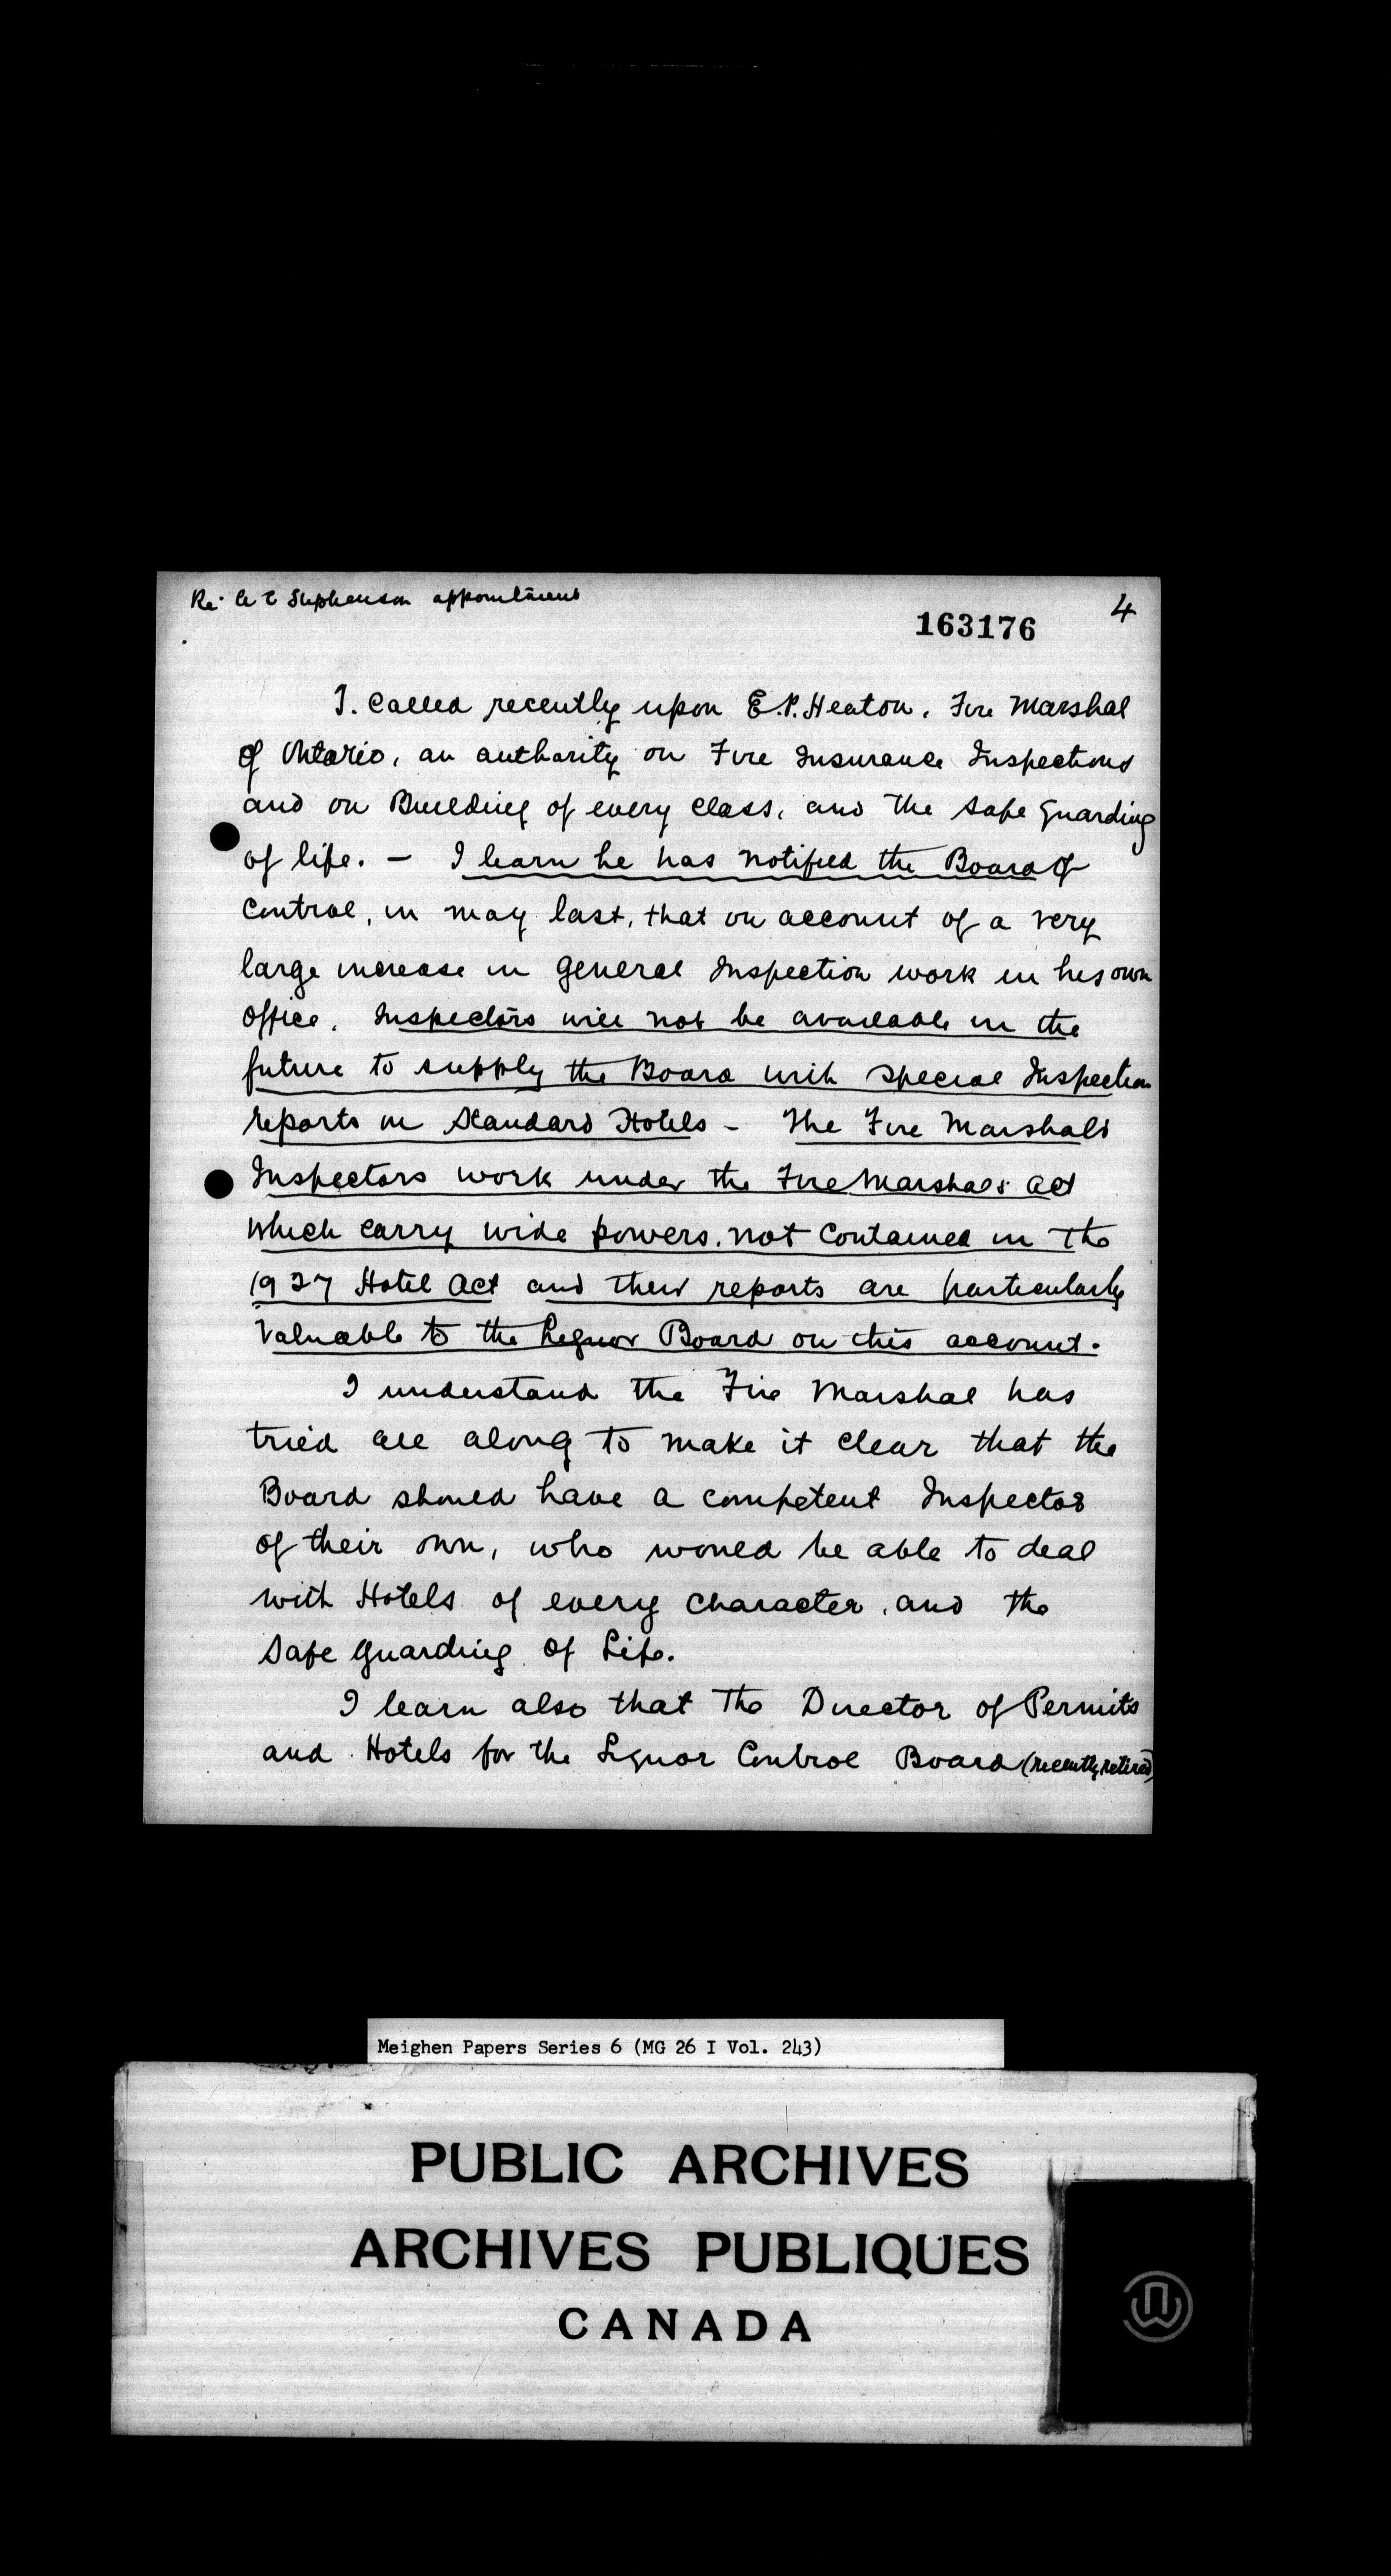 Re: A E Stephenson appointment
4
163176
I. Called recently upon E.P. Heaton, Fire Marshal
of Ontario, an authority on Fire Insurance Inspections
and on Building of every class, and the safe guarding
of life. - I learn he has notified the Board of
Control, in may last, that on account of a very
large increase in general Inspection work in his own
Office, Inspectors will not be available in the
future to supply the Board with special Inspection
reports on Standard Hotels - The Fire Marshals
Inspectors work under the Fire Marshals Act
which carry wide powers, not contained in the
1927 Hotel Act and their reports are particularly
Valuable to the Liquor Board on this account.
I understand the Fire Marshal has
tried all along to make it clear that the
Board should have a competent Inspector
of their own, who would be able to deal
with Hotels of every character, and the
Safe guarding of Life.
I learn also that the Director of Permits
and Hotels for the Liquor Control Board (recently retired)
Meighen Papers Series 6 (MG 26 I Vol. 243)
PUBLIC ARCHIVES
ARCHIVES PUBLIQUES
CANADA